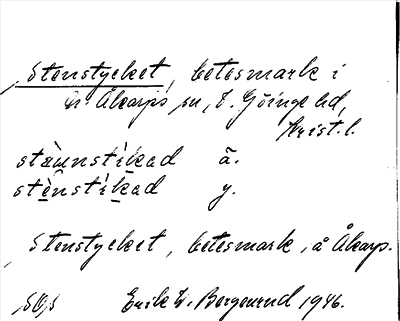 Stenstycket, betesmark i
N. Åkarps sn, V. Göinge hd,
Krist. l.
stäunstikad ä.
stenstikad y.
Stenstycket, betesmark, å Åkarp.
Erik W. Bergenrud 1946.